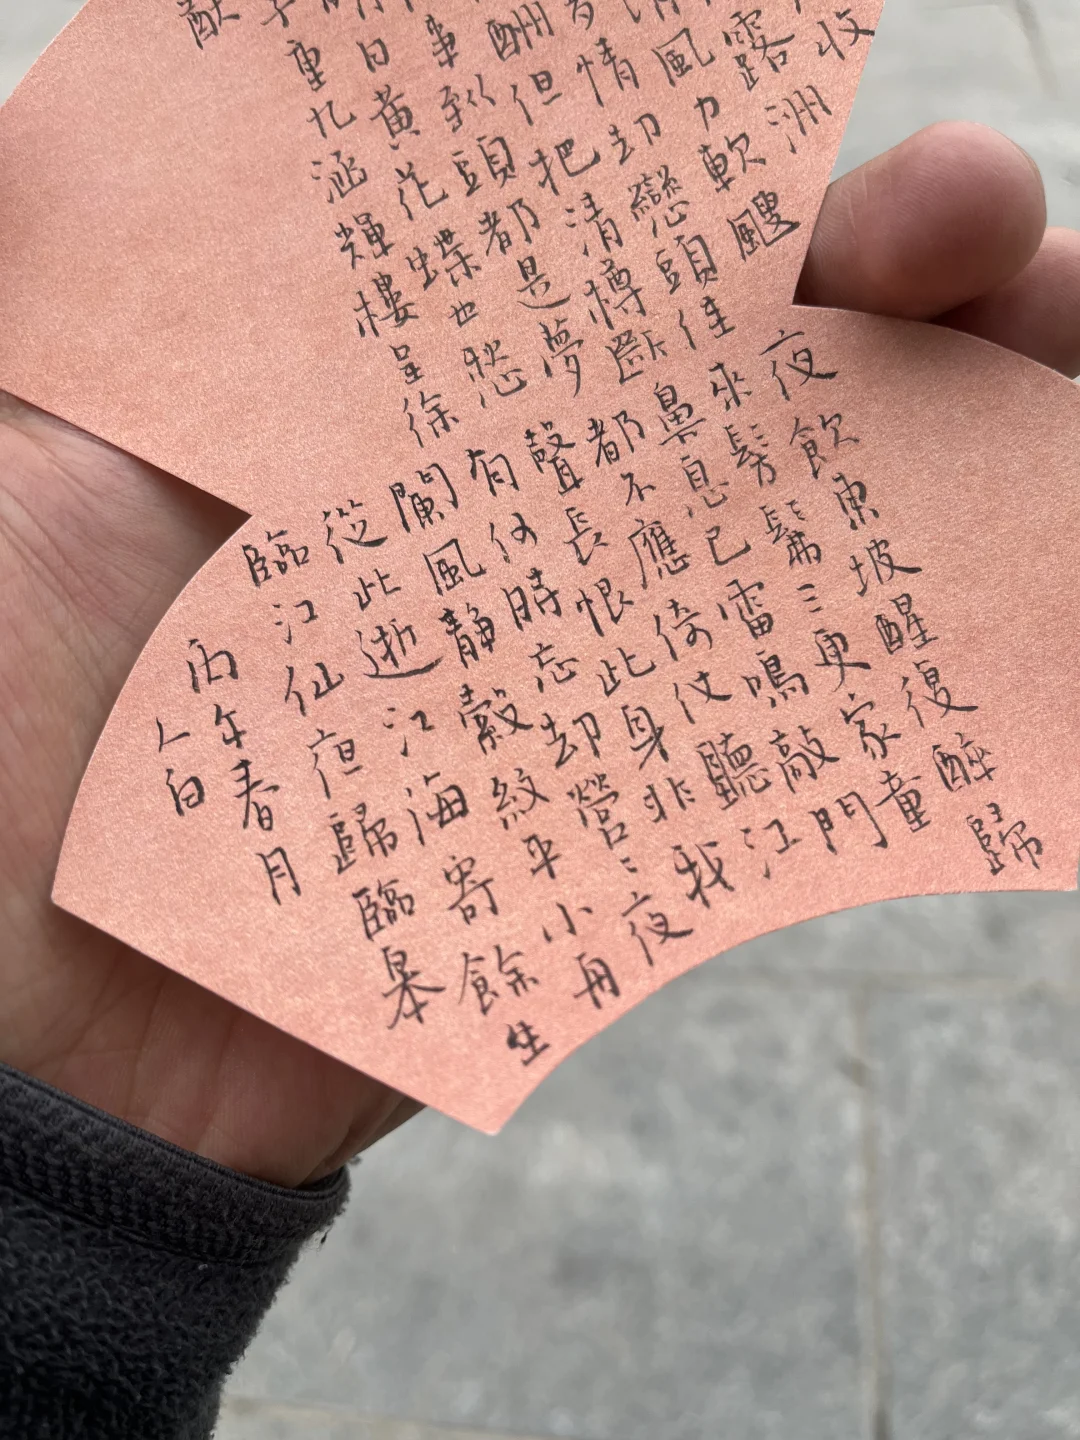 收
露洲
風力軟颼
情却戀頭佳
酬但把清樽斷
事到頭都是夢
日黃花蝶也愁
重九涵輝樓呈徐
猷
夜飲東坡醒復醉歸
來髣髴三更家童
鼻息已雷鳴敲門
都不應倚仗聽江
聲長恨此身非我
有何時忘却營〻夜
闌風靜縠紋平小舟
從此逝江海寄餘生
臨江仙夜歸臨皋
丙午春月
人白